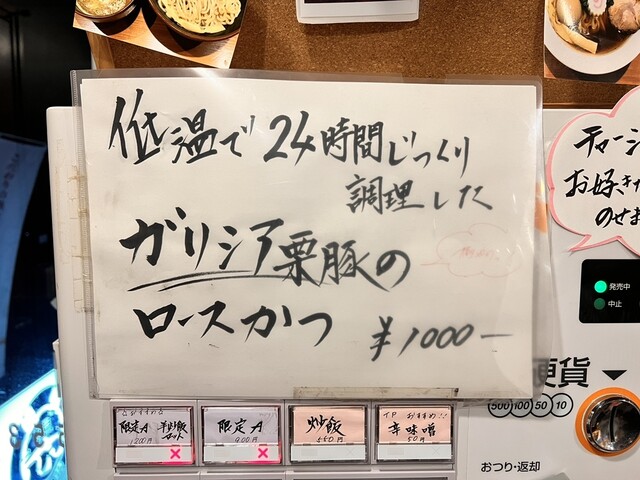 低温で24時間じっくり
調理した
ガリシア栗豚の
ロースかつ ¥1000-
チャーシ
お好きな
のせま
発売中
中止
硬貨
500 100 50 10
おつり・返却
おすすめ
限定A 半炒飯
セット
1200円
限定A
900円
炒飯
550円
TP おすすめ!!
辛味噌
50円